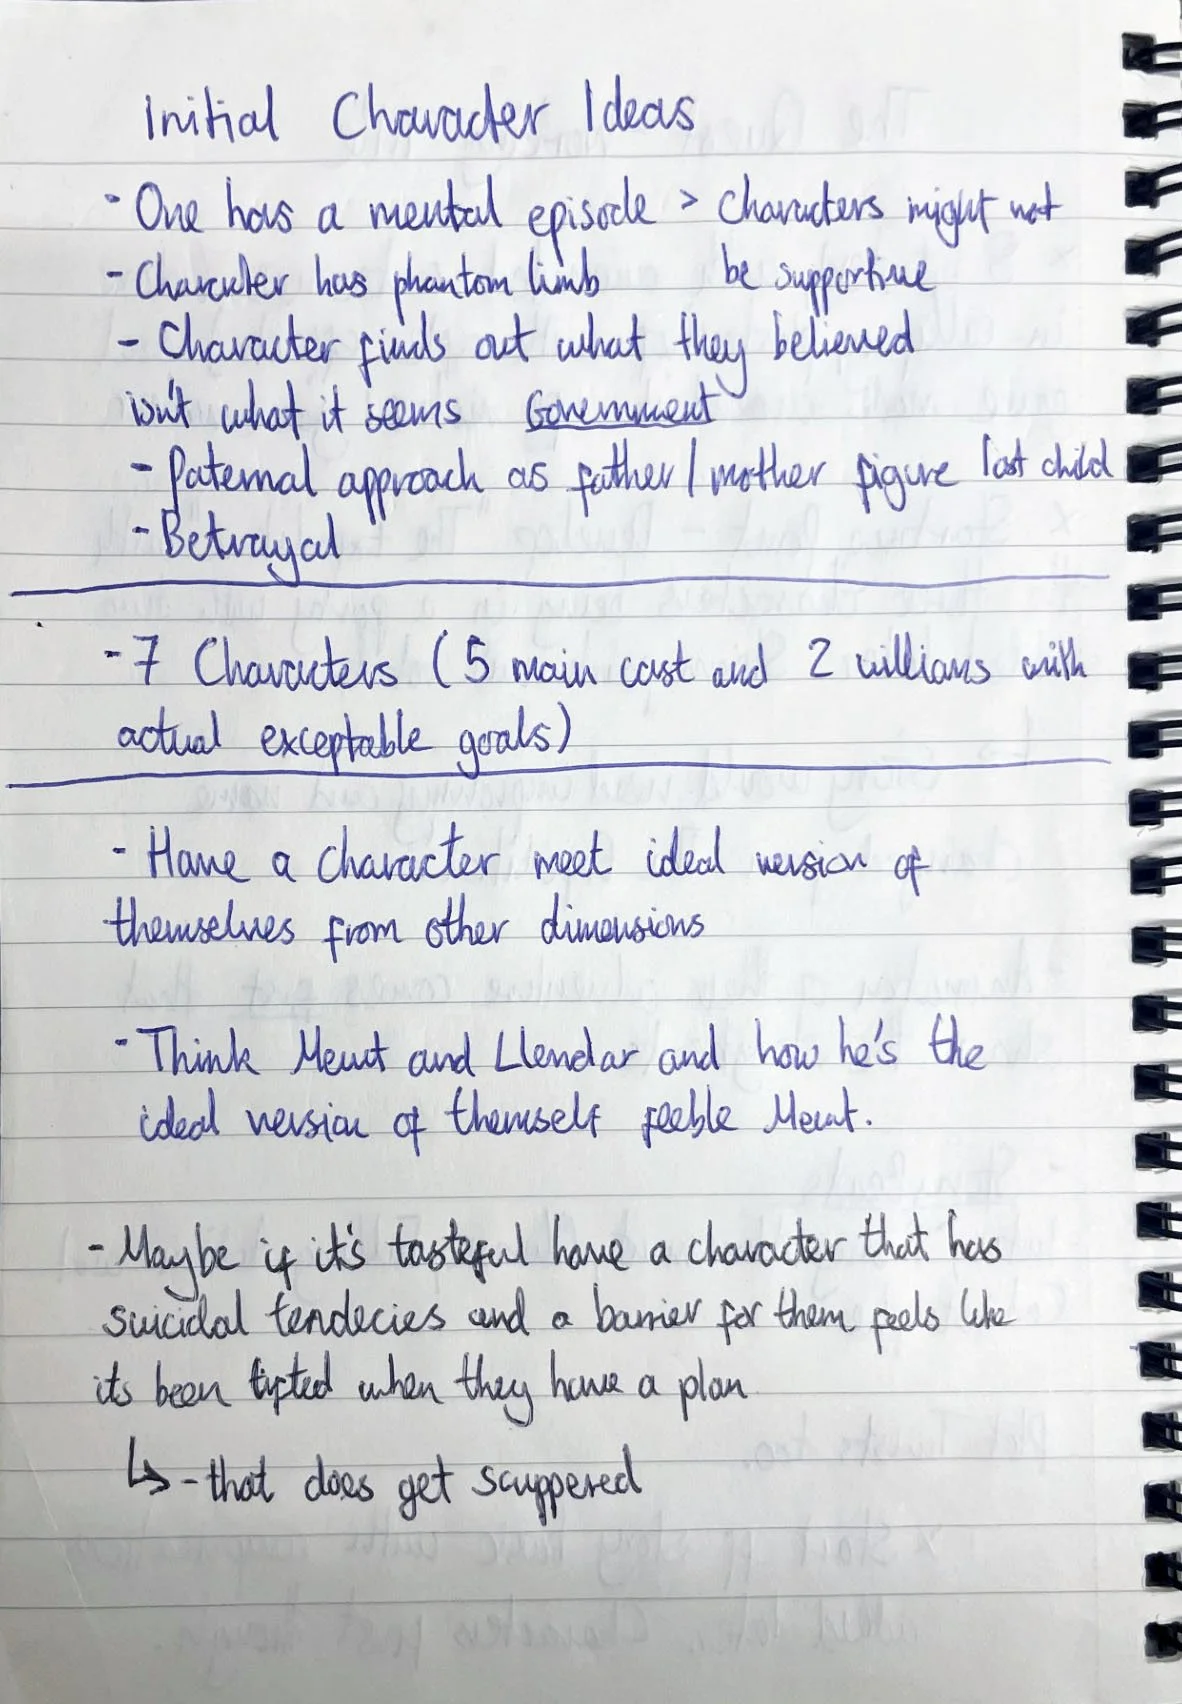 Initial Character Ideas
- One has a mental episode > characters might not
be supportive
- Character has phantom limb
- Character finds out what they believed
isn't what it seems Government
- Paternal approach as father/mother figure lost child
- Betrayal
- 7 Characters (5 main cast and 2 villians with
actual exceptable goals)
- Have a character meet ideal version of
themselves from other dimensions
- Think Mewt and Llendar and how he's the
ideal version of themself feeble Mewt.
- Maybe if it's tasteful have a character that has
suicidal tendecies and a barrier for them feels like
its been lifted when they have a plan
↳ - that does get scuppered